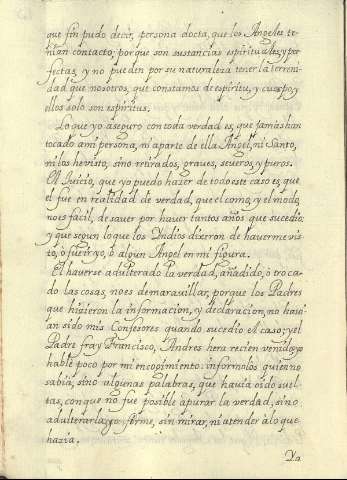 que sin pudo decir, persona docta, que los Angeles te-
nian contacto; porque son sustancias espirituales, y per
fectas, y no pueden por su naturaleza tener la terreni-
dad que nosotros, que constamos de espiritu, y cuerpo, y
ellos solo son espiritus.
Lo que yo aseguro con toda verdad es, que jamás han
tocado a mi persona, ni a parte de ella Angel, ni Santo,
ni los he visto, sino retirados, graves, severos, y puros.
El Juicio, que yo puedo hazer de todo este caso es, que
el fue en realidad de verdad, que el como, y el modo,
no es facil, de saver por haver tantos años que sucedio;
y que segun lo que los Yndios dixeron de haverme vis-
to, ò fuese yo, ò algun Angel en mi figura.
El haverse adulterado la verdad, añadido, ò troca-
do las cosas, no es de maravillar, porque los Padres
que hizieron la informacion, y declaracion, no havi-
an sido mis Confesores quando sucedio el caso; y el
Padre fray Francisco, Andres hera recien venido, yo
hable poco por mi encogimiento informolos quien no
sabia, sino algunas palabras, que havia oido suel-
tas, con que no fue posible apurar la verdad, sino
adulterarla, yo firme, sin mirar, ni atender à lo que
hazia.
Ya